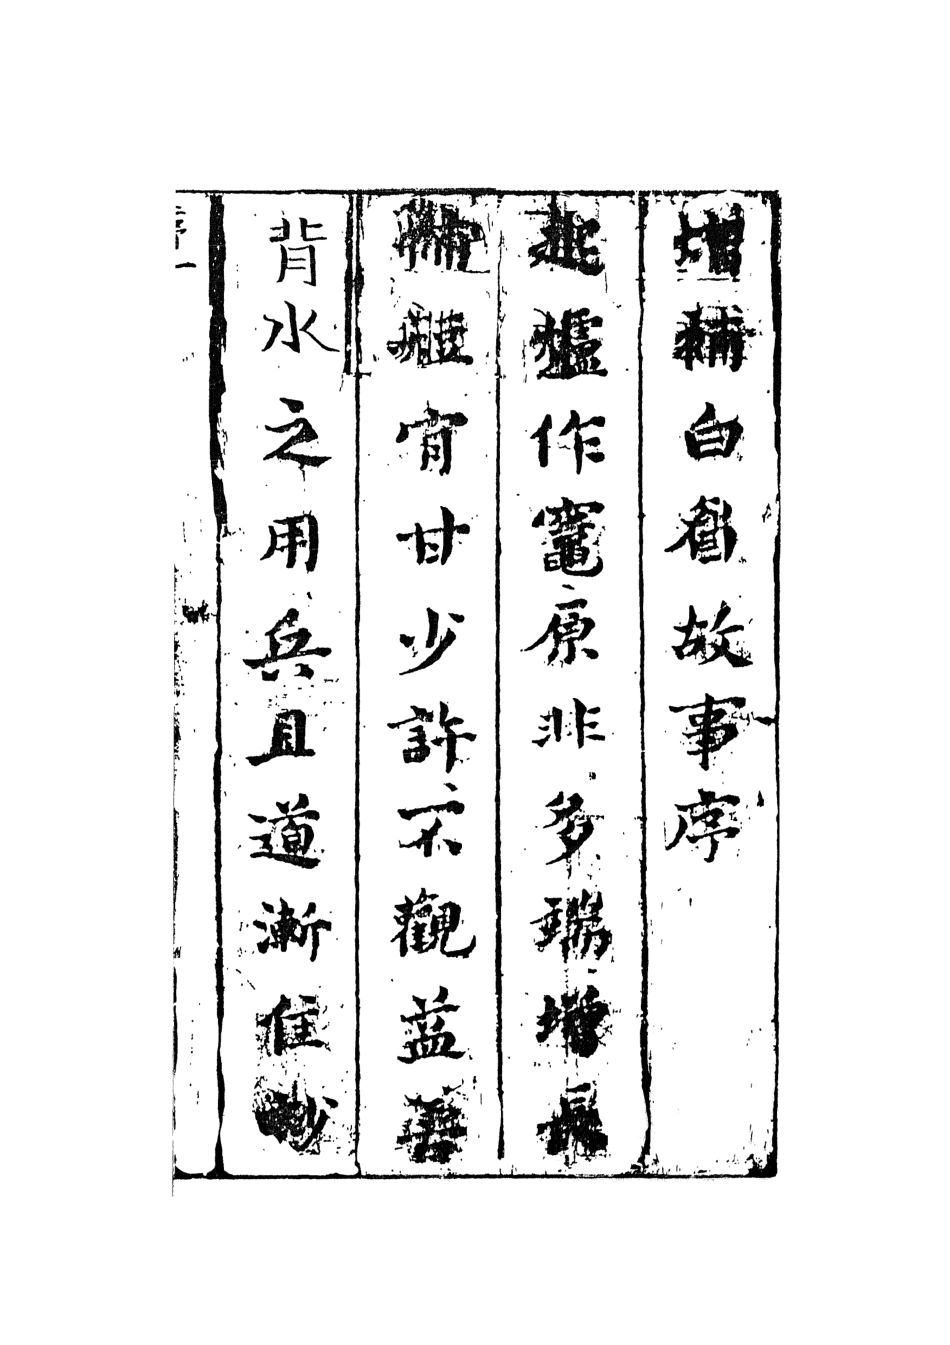 增補白眉故事序
爐作竈原非多增長
宵甘少許不觀益善
背水之用兵且道漸佳妙
序一